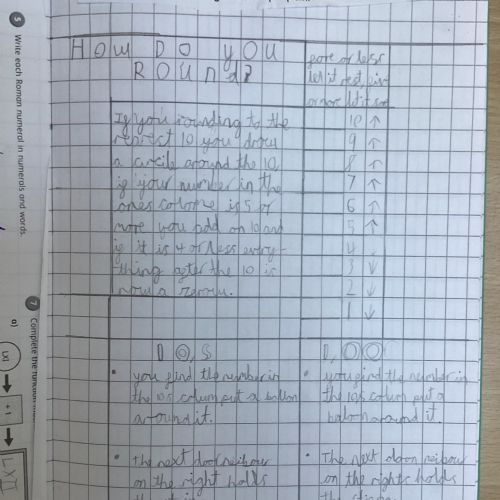 5 Write each Roman numeral in numerals and words.
7 Complete the function
a)
+1
LXII
How Do you
Round?
gore or less
let it rest, give
or more let it
If you're rounding to the
nearest 10 you drow
a circile around the 10,
if your number in the
ones colome is 5 or
more you add on 10 and
if it is 4 or less every-
thing after the 10 is
now a
10 ↑
9 ↑
8 ↑
7 ↑
6 ↑
5 ↑
4
3 ↓
2 ↓
1 ↓
DO,S
• you find the number in
the 10s column put a
around it.
• The next door neibour
on the right holds
D,OO
• you find the number in
the 10s column put a
baloon around it.
• The next door neibour
on the right holds
the